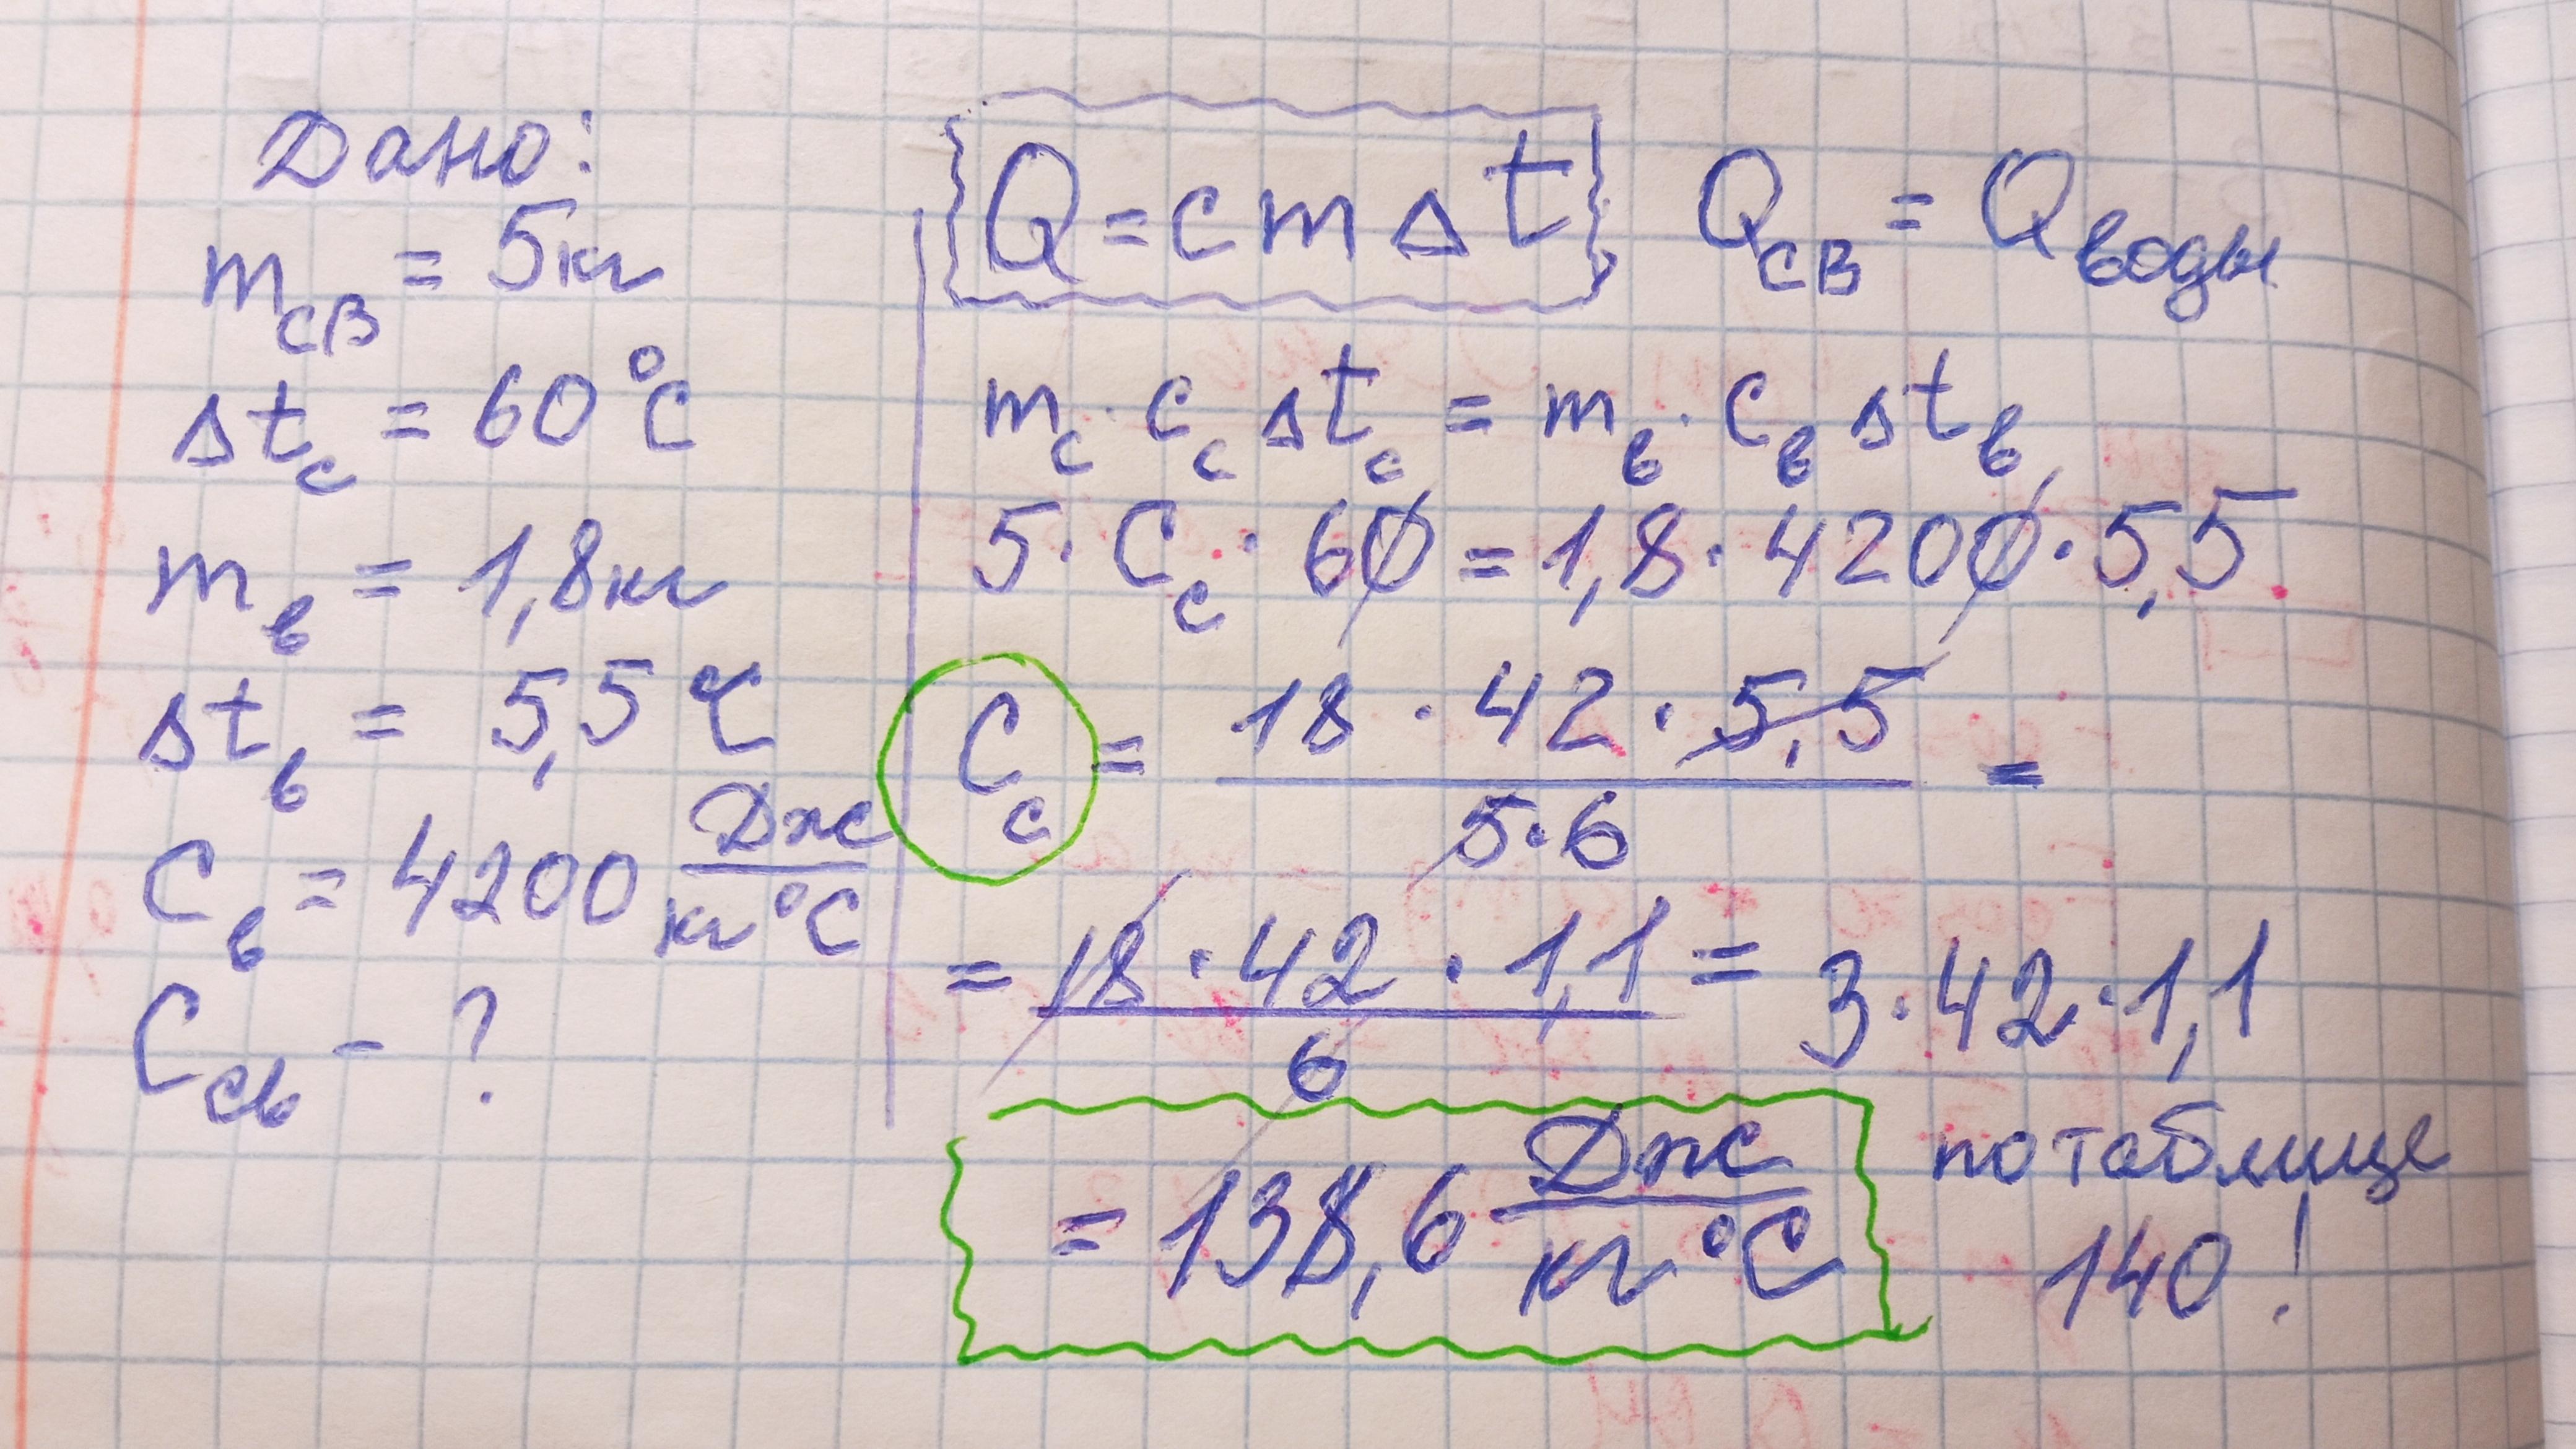 Дано:
m_св = 5кг
Δt_с = 60°C
m_в = 1,8кг
Δt_в = 5,5 °C
C_в = 4200 Дж/кг°C
C_св - ?
Q = c m Δt
Q_св = Q_воды
m_с · c_с Δt_с = m_в · c_в Δt_в
5 · C_с · 60 = 1,8 · 4200 · 5,5
C_с = 18 · 42 · 5,5 / 5 · 6 =
= 18 · 42 · 1,1 / 6 = 3 · 42 · 1,1
= 138,6 Дж/кг°C
по таблице
140!